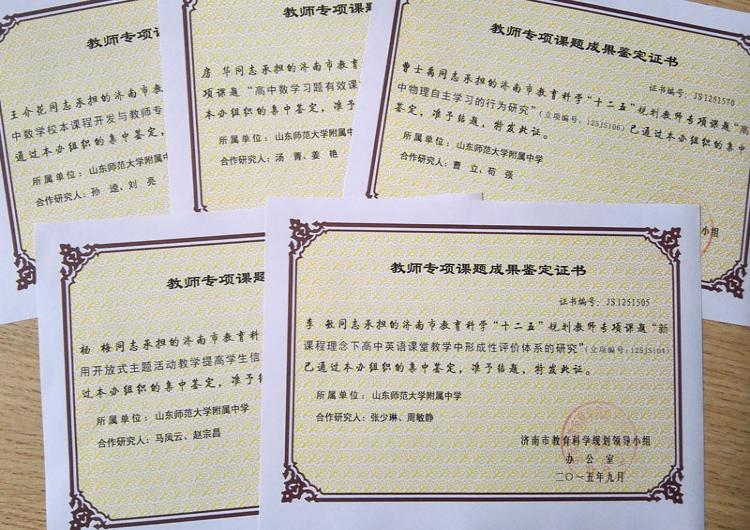 教师专项课
王介苑同志承担的济南市教
中数学校本课程开发与教师专
通过本办组织的集中鉴定,
所属单位:山东师范大学附属中
合作研究人:孙 逵、刘 亮
教师专项课题
房 华同志承担的济南市教育
项课题“高中数学习题有效课
本办组织的集中鉴定,准予
所属单位:山东师范大学附属中
合作研究人:汤 菁、姜 艳
教师专项课题成果鉴定证书
证书编号:JS1251570
曹士禹同志承担的济南市教育科学“十二五”规划教师专项课题“
中物理自主学习的行为研究”(立项编号:125JS106)已通过本办组织的集中
鉴定,准予结题,特发此证。
所属单位:山东师范大学附属中学
合作研究人:曹 立、荀 强
小组
教师专项课题
杨 梅同志承担的济南市教育科
用开放式主题活动教学提高学生信
过本办组织的集中鉴定,准予
所属单位:山东师范大学附属中学
合作研究人:马凤云、赵宗昌
教师专项课题成果鉴定证书
证书编号:JS1251505
李 敏同志承担的济南市教育科学“十二五”规划教师专项课题“新
课程理念下高中英语课堂教学中形成性评价体系的研究”(立项编号:125JS104)
已通过本办组织的集中鉴定,准予结题,特发此证。
所属单位:山东师范大学附属中学
合作研究人:张少琳、周敏静
济南市教育科学规划领导小组
办 公 室
二〇一五年九月